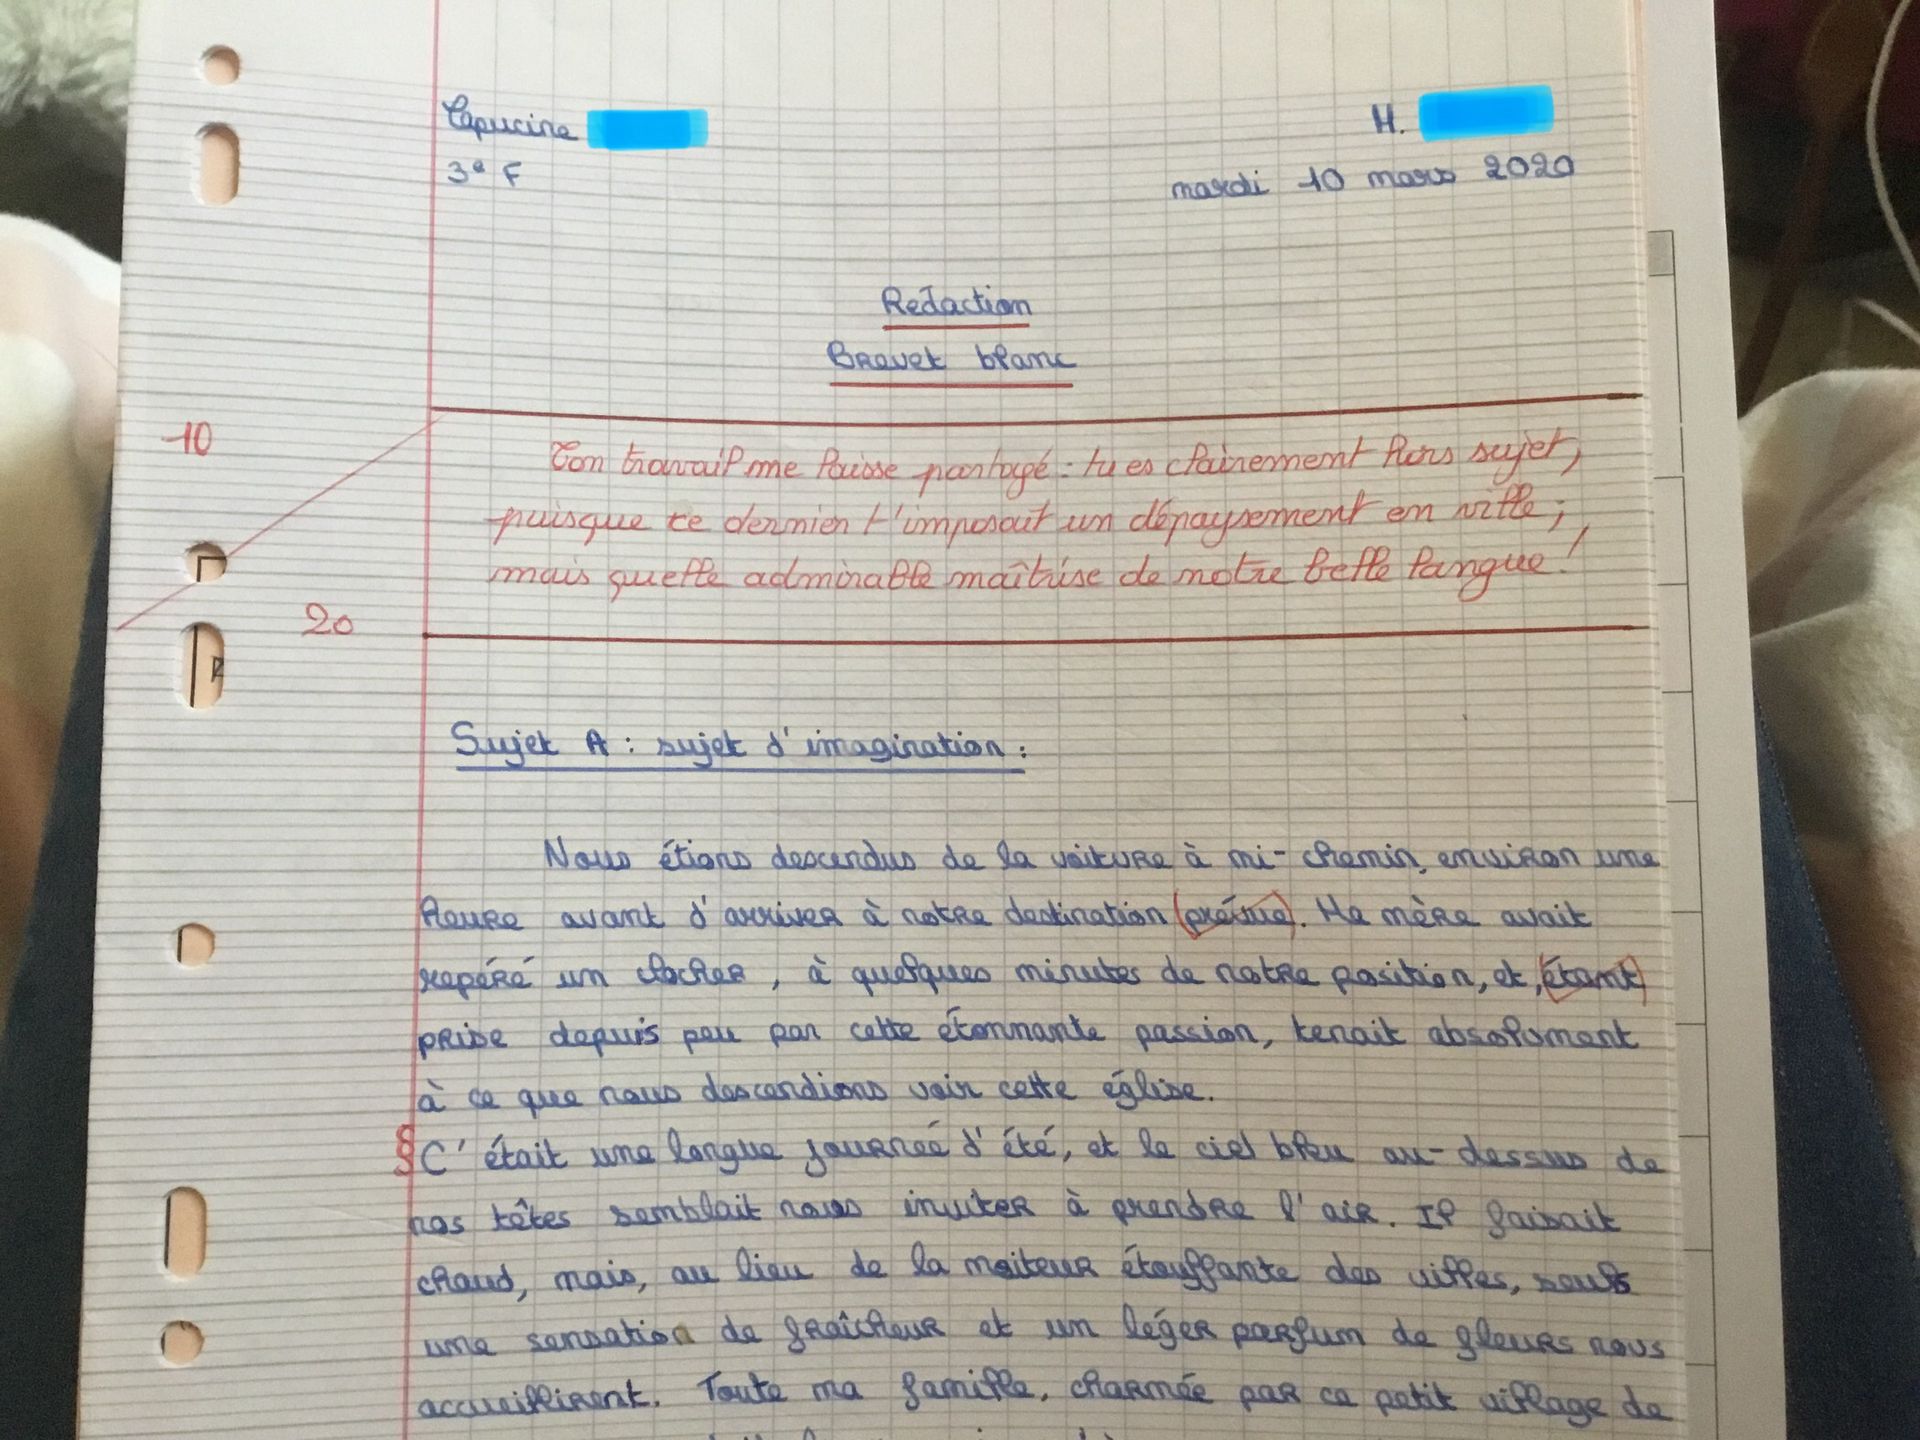 Capucine
M.
3e F
mardi 10 mars 2020
Rédaction
Brevet blanc
10
20
Ton travail me laisse partagé : tu es clairement hors sujet,
puisque ce dernier t'imposait un dépaysement en ville ;
mais quelle admirable maîtrise de notre belle langue !
Sujet A : sujet d'imagination :
Nous étions descendus de la voiture à mi-chemin, environ une
heure avant d'arriver à notre destination (prévue). Ma mère avait
repéré un clocher, à quelques minutes de notre position, et, (étant)
prise depuis peu par cette étonnante passion, tenait absolument
à ce que nous descendions voir cette église.
§ C'était une longue journée d'été, et le ciel bleu au-dessus de
nos têtes semblait nous inviter à prendre l'air. Il faisait
chaud, mais, au lieu de la moiteur étouffante des villes, seuls
une sensation de fraîcheur et un léger parfum de fleurs nous
accueillirent. Toute ma famille, charmée par ce petit village de